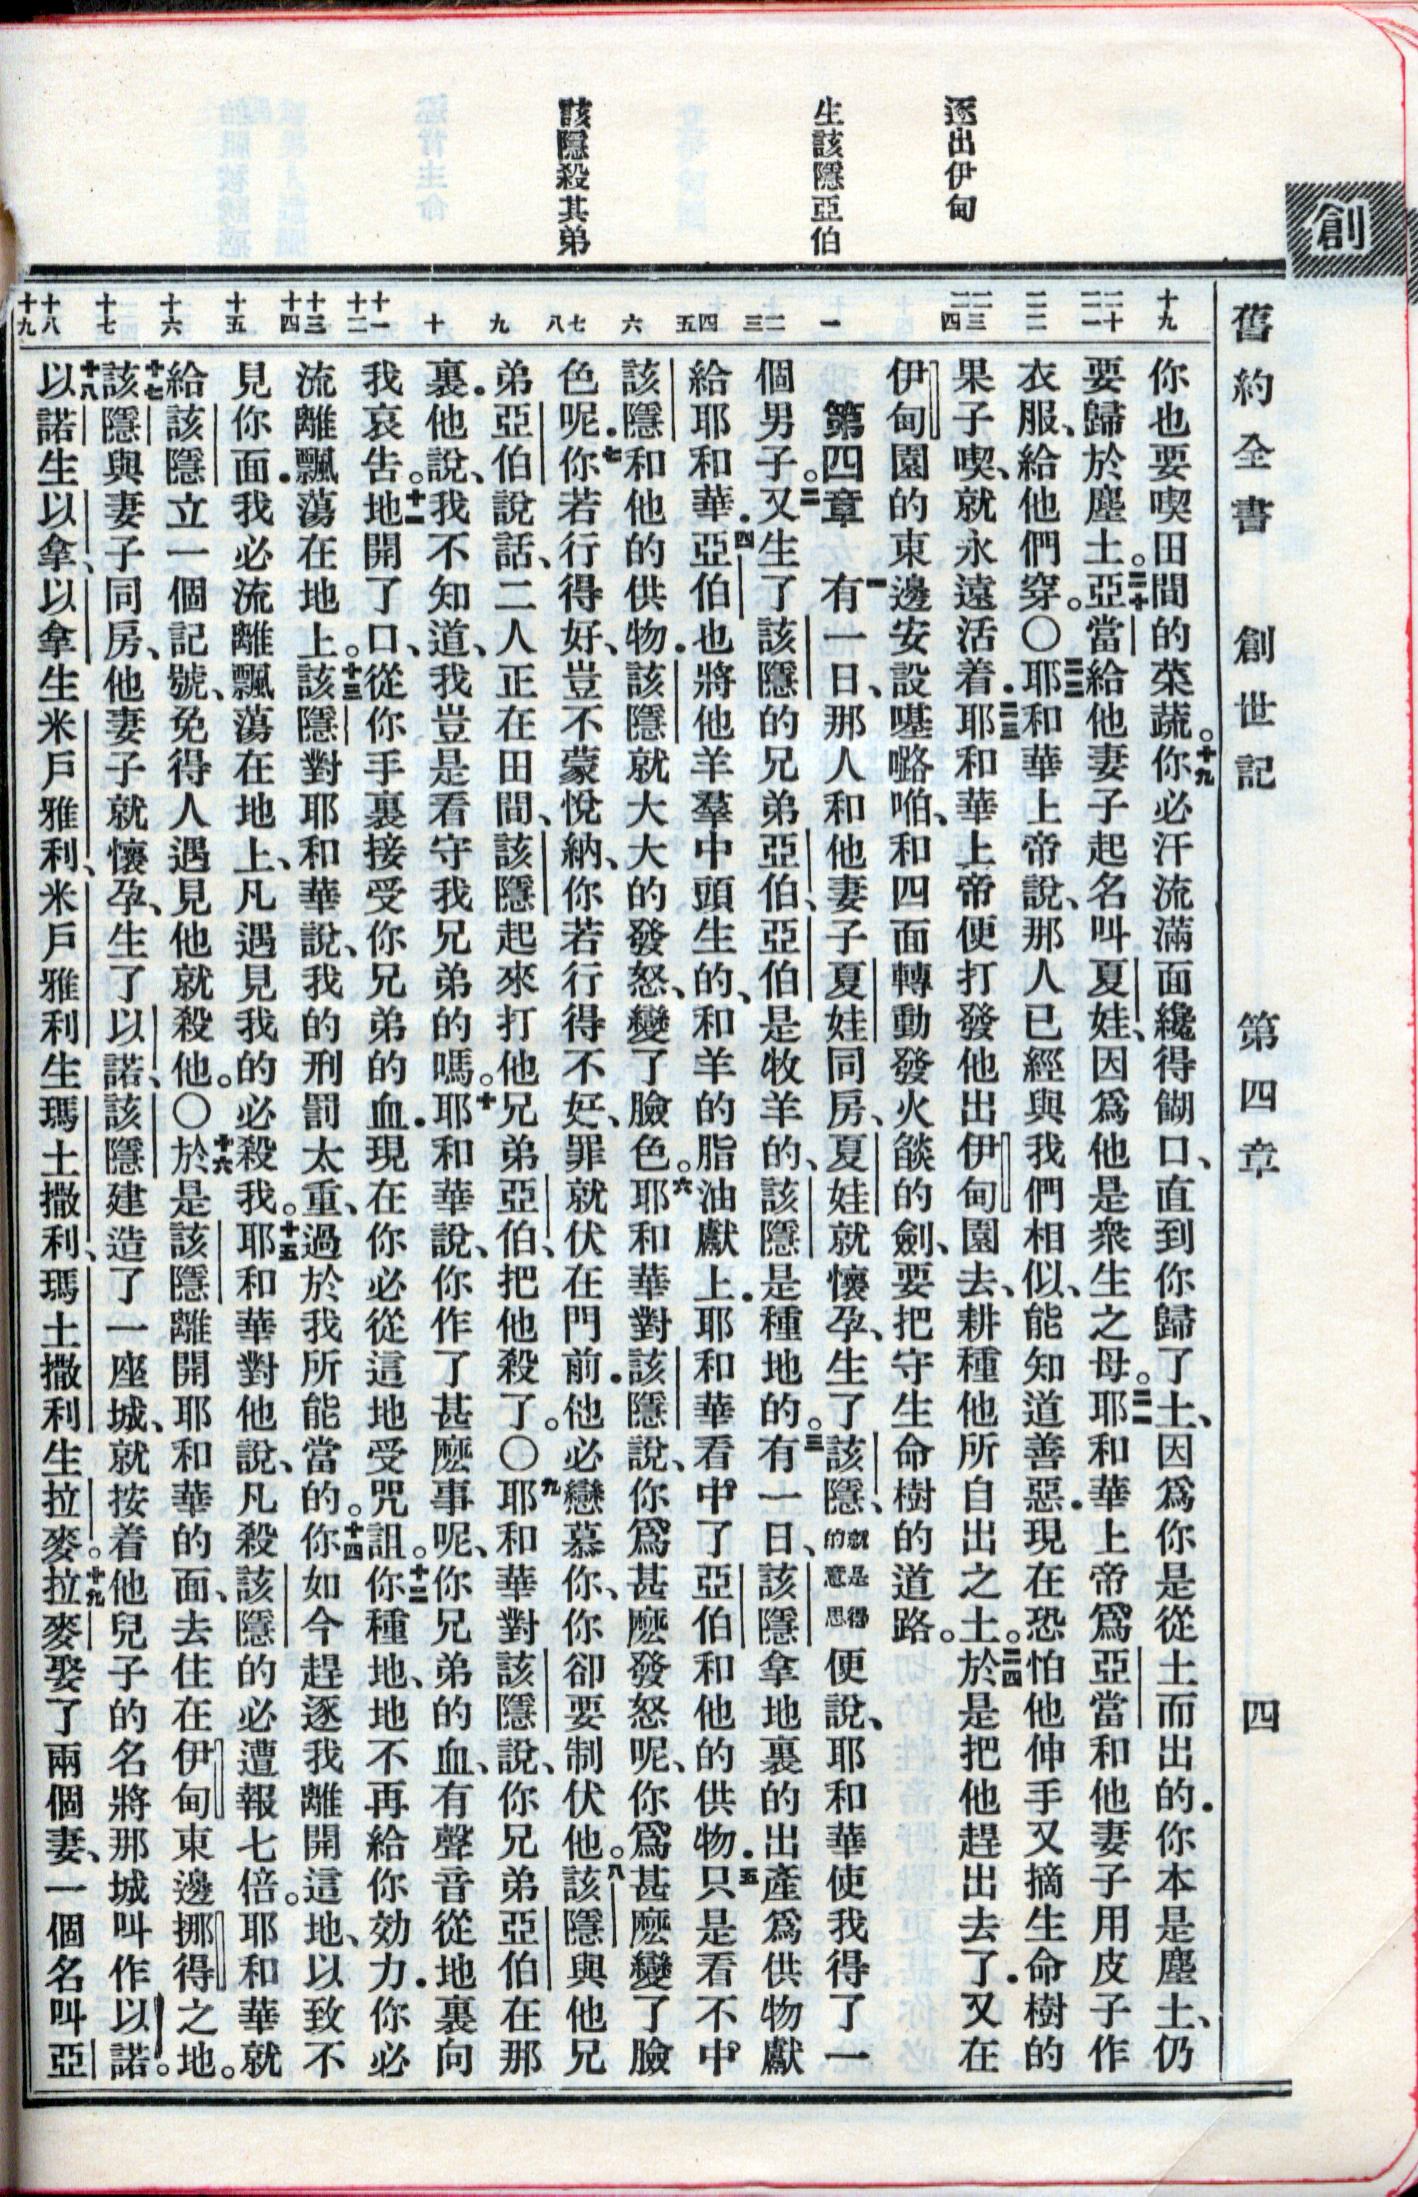 創
舊約全書　創世記　第四章　四
逐出伊甸
生該隱亞伯
該隱殺其弟
十九
二十　二一
二二
二三　二四
一
二　三
四　五
六
七　八
九
十
十一　十二
十三　十四
十五
十六
十七
十八　十九
你也要喫田間的菜蔬。十九你必汗流滿面纔得餬口、直到你歸了土、因爲你是從土而出的．你本是塵土、仍
要歸於塵土。二十亞當給他妻子起名叫夏娃、因爲他是衆生之母。二一耶和華上帝爲亞當和他妻子用皮子作
衣服、給他們穿。〇二二耶和華上帝說、那人已經與我們相似、能知道善惡．現在恐怕他伸手又摘生命樹的
果子喫、就永遠活着．二三耶和華上帝便打發他出伊甸園去、耕種他所自出之土。二四於是把他趕出去了．又在
伊甸園的東邊安設𠼻𡀔咱、和四面轉動發火燄的劍、要把守生命樹的道路。
第四章　一有一日、那人和他妻子夏娃同房、夏娃就懷孕、生了該隱、就是得的意思便說、耶和華使我得了一
個男子。二又生了該隱的兄弟亞伯、亞伯是牧羊的、該隱是種地的。三有一日、該隱拿地裏的出產爲供物獻
給耶和華．四亞伯也將他羊羣中頭生的、和羊的脂油獻上．耶和華看中了亞伯和他的供物．五只是看不中
該隱和他的供物．該隱就大大的發怒、變了臉色。六耶和華對該隱說、你爲甚麼發怒呢、你爲甚麼變了臉
色呢．七你若行得好、豈不蒙悅納、你若行得不好、罪就伏在門前．他必戀慕你、你卻要制伏他。八該隱與他兄
弟亞伯說話、二人正在田間、該隱起來打他兄弟亞伯、把他殺了。〇九耶和華對該隱說、你兄弟亞伯在那
裏．他說、我不知道、我豈是看守我兄弟的嗎。十耶和華說、你作了甚麼事呢、你兄弟的血、有聲音從地裏向
我哀告。十一地開了口、從你手裏接受你兄弟的血．現在你必從這地受咒詛。十二你種地、地不再給你効力．你必
流離飄蕩在地上。十三該隱對耶和華說、我的刑罰太重、過於我所能當的。十四你如今趕逐我離開這地、以致不
見你面．我必流離飄蕩在地上、凡遇見我的必殺我。十五耶和華對他說、凡殺該隱的必遭報七倍。耶和華就
給該隱立一個記號、免得人遇見他就殺他。〇十六於是該隱離開耶和華的面、去住在伊甸東邊挪得之地。
十七該隱與妻子同房、他妻子就懷孕、生了以諾、該隱建造了一座城、就按着他兒子的名將那城叫作以諾。
十八以諾生以拿、以拿生米戶雅利、米戶雅利生瑪土撒利、瑪土撒利生拉麥。十九拉麥娶了兩個妻、一個名叫亞